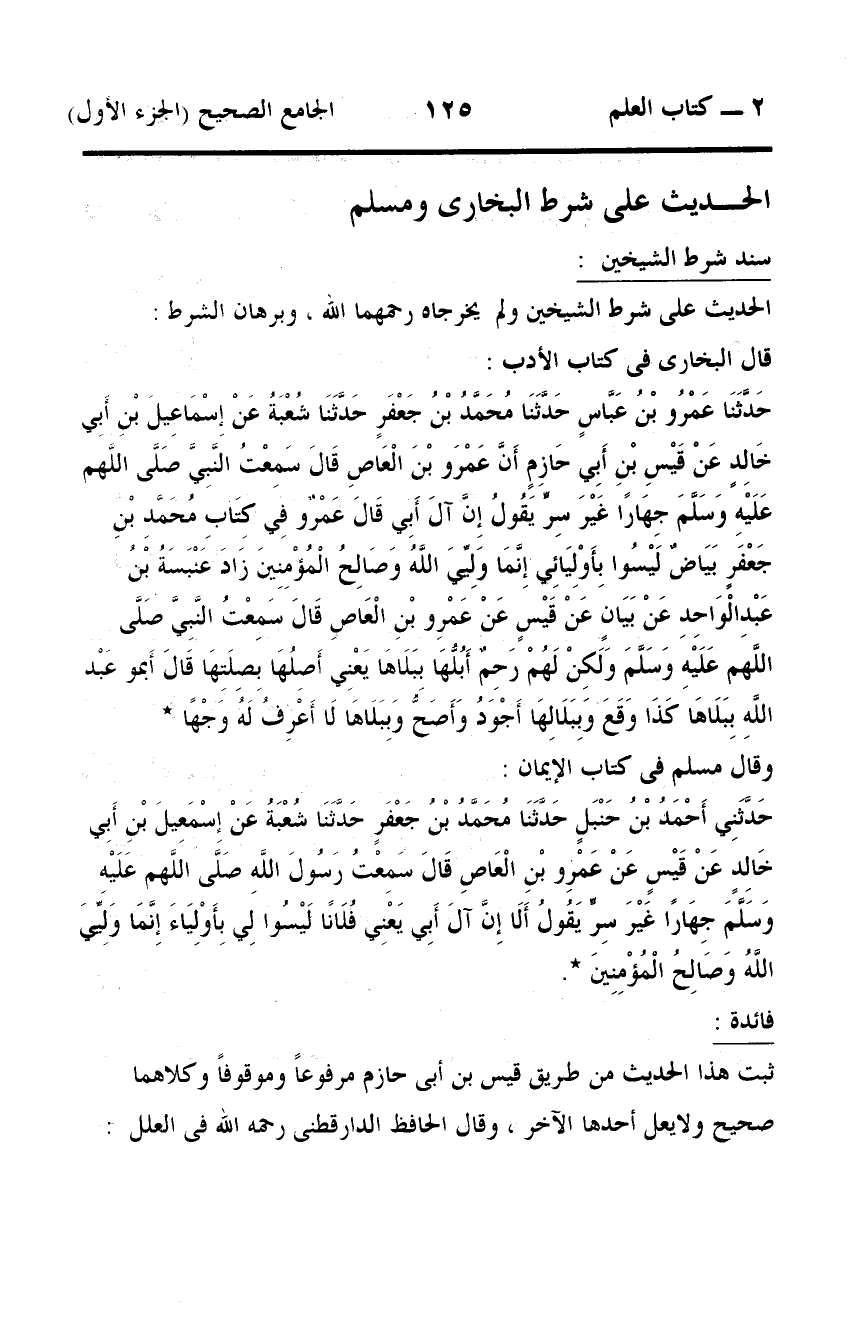 ٢ ــ كتاب العلم ١٢٥ الجامع الصحيح (الجزء الأول)
الحـــديث على شرط البخارى ومسلم
سند شرط الشيخين :
الحديث على شرط الشيخين ولم يخرجاه رحمهما الله ، وبرهان الشرط :
قال البخارى فى كتاب الأدب :
حَدَّثَنَا عَمْرُو بْنُ عَبَّاسٍ حَدَّثَنَا مُحَمَّدُ بْنُ جَعْفَرٍ حَدَّثَنَا شُعْبَةُ عَنْ إِسْمَاعِيلَ بْنِ أَبِي
خَالِدٍ عَنْ قَيْسِ بْنِ أَبِي حَازِمٍ أَنَّ عَمْرَو بْنَ الْعَاصِ قَالَ سَمِعْتُ النَّبِيَّ صَلَّى اللَّهم
عَلَيْهِ وَسَلَّمَ جِهَارًا غَيْرَ سِرٍّ يَقُولُ إِنَّ آلَ أَبِي قَالَ عَمْرٌو فِي كِتَابِ مُحَمَّدِ بْنِ
جَعْفَرٍ بَيَاضٌ لَيْسُوا بِأَوْلِيَائِي إِنَّمَا وَلِيِّيَ اللَّهُ وَصَالِحُ الْمُؤْمِنِينَ زَادَ عَنْبَسَةُ بْنُ
عَبْدِالْوَاحِدِ عَنْ بَيَانٍ عَنْ قَيْسٍ عَنْ عَمْرِو بْنِ الْعَاصِ قَالَ سَمِعْتُ النَّبِيَّ صَلَّى
اللَّهم عَلَيْهِ وَسَلَّمَ وَلَكِنْ لَهُمْ رَحِمٌ أَبُلُّهَا بِبَلَاهَا يَعْنِي أَصِلُهَا بِصِلَتِهَا قَالَ أَبمو عَبْد
اللَّهِ بِبَلَاهَا كَذَا وَقَعَ وَبِبَلَالِهَا أَجْوَدُ وَأَصَحُّ وَبِبَلَاهَا لَا أَعْرِفُ لَهُ وَجْهًا *
وقال مسلم فى كتاب الإيمان :
حَدَّثَنِي أَحْمَدُ بْنُ حَنْبَلٍ حَدَّثَنَا مُحَمَّدُ بْنُ جَعْفَرٍ حَدَّثَنَا شُعْبَةُ عَنْ إِسْمَعِيلَ بْنِ أَبِي
خَالِدٍ عَنْ قَيْسٍ عَنْ عَمْرِو بْنِ الْعَاصِ قَالَ سَمِعْتُ رَسُولَ اللَّهِ صَلَّى اللَّهم عَلَيْهِ
وَسَلَّمَ جِهَارًا غَيْرَ سِرٍّ يَقُولُ أَلَا إِنَّ آلَ أَبِي يَعْنِي فُلَانًا لَيْسُوا لِي بِأَوْلِيَاءَ إِنَّمَا وَلِيِّيَ
اللَّهُ وَصَالِحُ الْمُؤْمِنِينَ *.
فائدة :
ثبت هذا الحديث من طريق قيس بن أبى حازم مرفوعاً وموقوفاً وكلاهما
صحيح ولايعل أحدها الآخر ، وقال الحافظ الدارقطنى رحمه الله فى العلل :